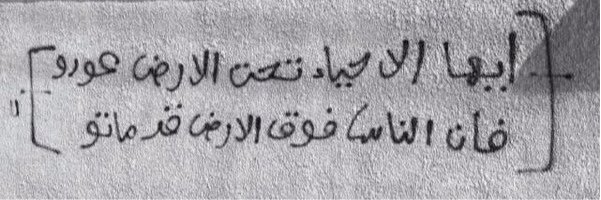 أيها الاحياء تحت الارض عودو
فان الناس فوق الارض قد ماتو